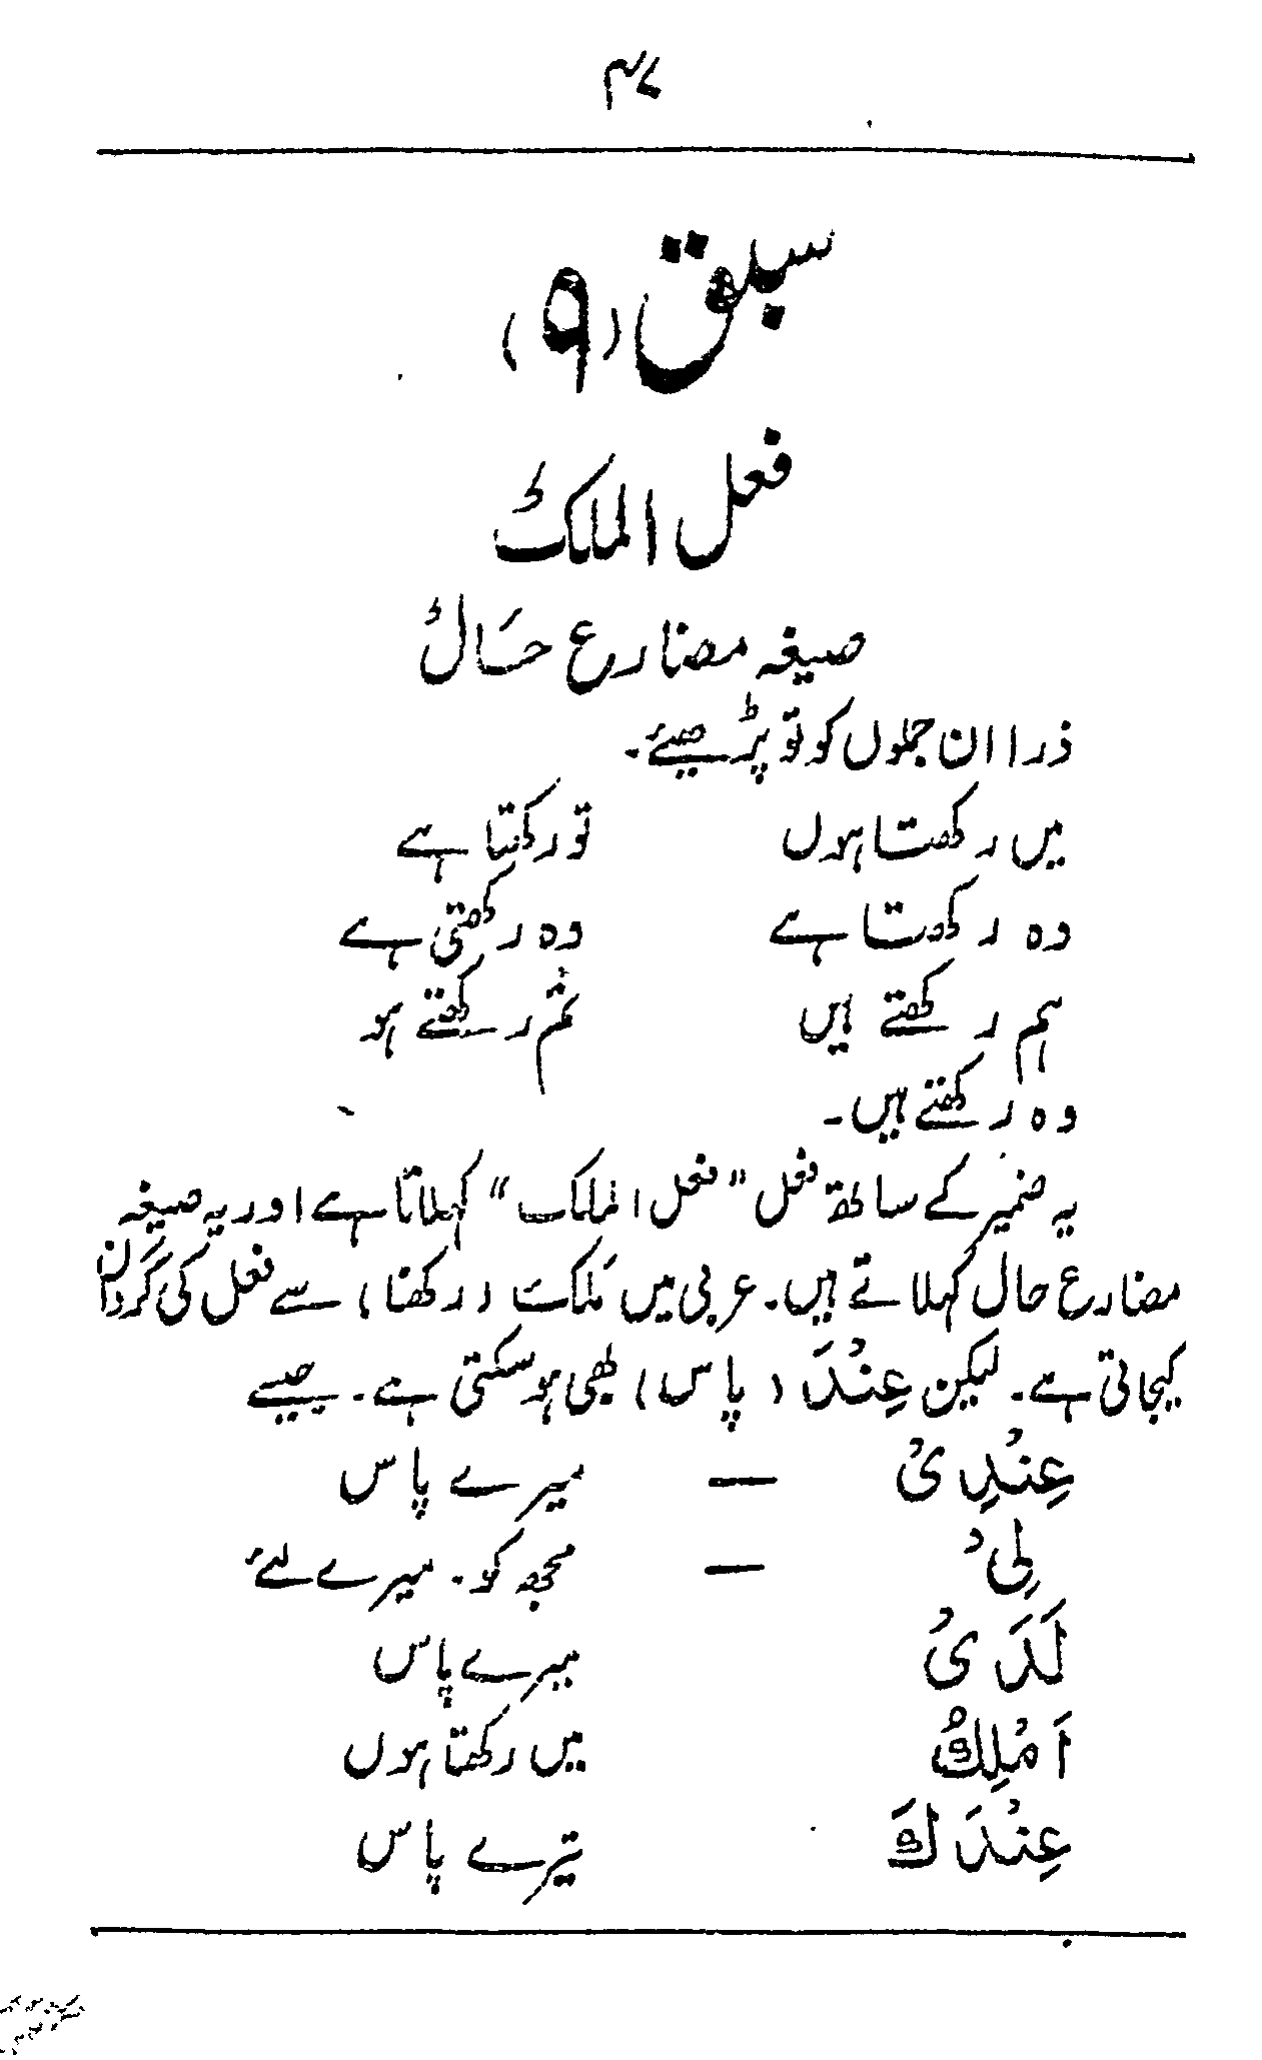 ۴۷
سبق (۹)
فعل الملک
صیغہ مضارع حَالْ
ذرا ان جملوں کو تو پڑھیئے۔
میں رکھتا ہوں تو رکھتا ہے
وہ رکھتا ہے وہ رکھتی ہے
ہم رکھتے ہیں تم رکھتے ہو
وہ رکھتے ہیں۔
یہ ضمیر کے ساتھ فعل "فعل الملک" کہلاتا ہے اور یہ صیغہ
مضارع حال کہلاتے ہیں۔ عربی میں مَلَکَ (رکھنا) سے فعل کی گردان
کیجاتی ہے۔ لیکن عِنْدَ (پاس) بھی ہو سکتی ہے۔ جیسے
عِنْدِیْ — میرے پاس
لِیْ — مجھ کو۔ میرے لئے
لَدَیْ میرے پاس
اَمْلِكُ میں رکھتا ہوں
عِنْدَكَ تیرے پاس